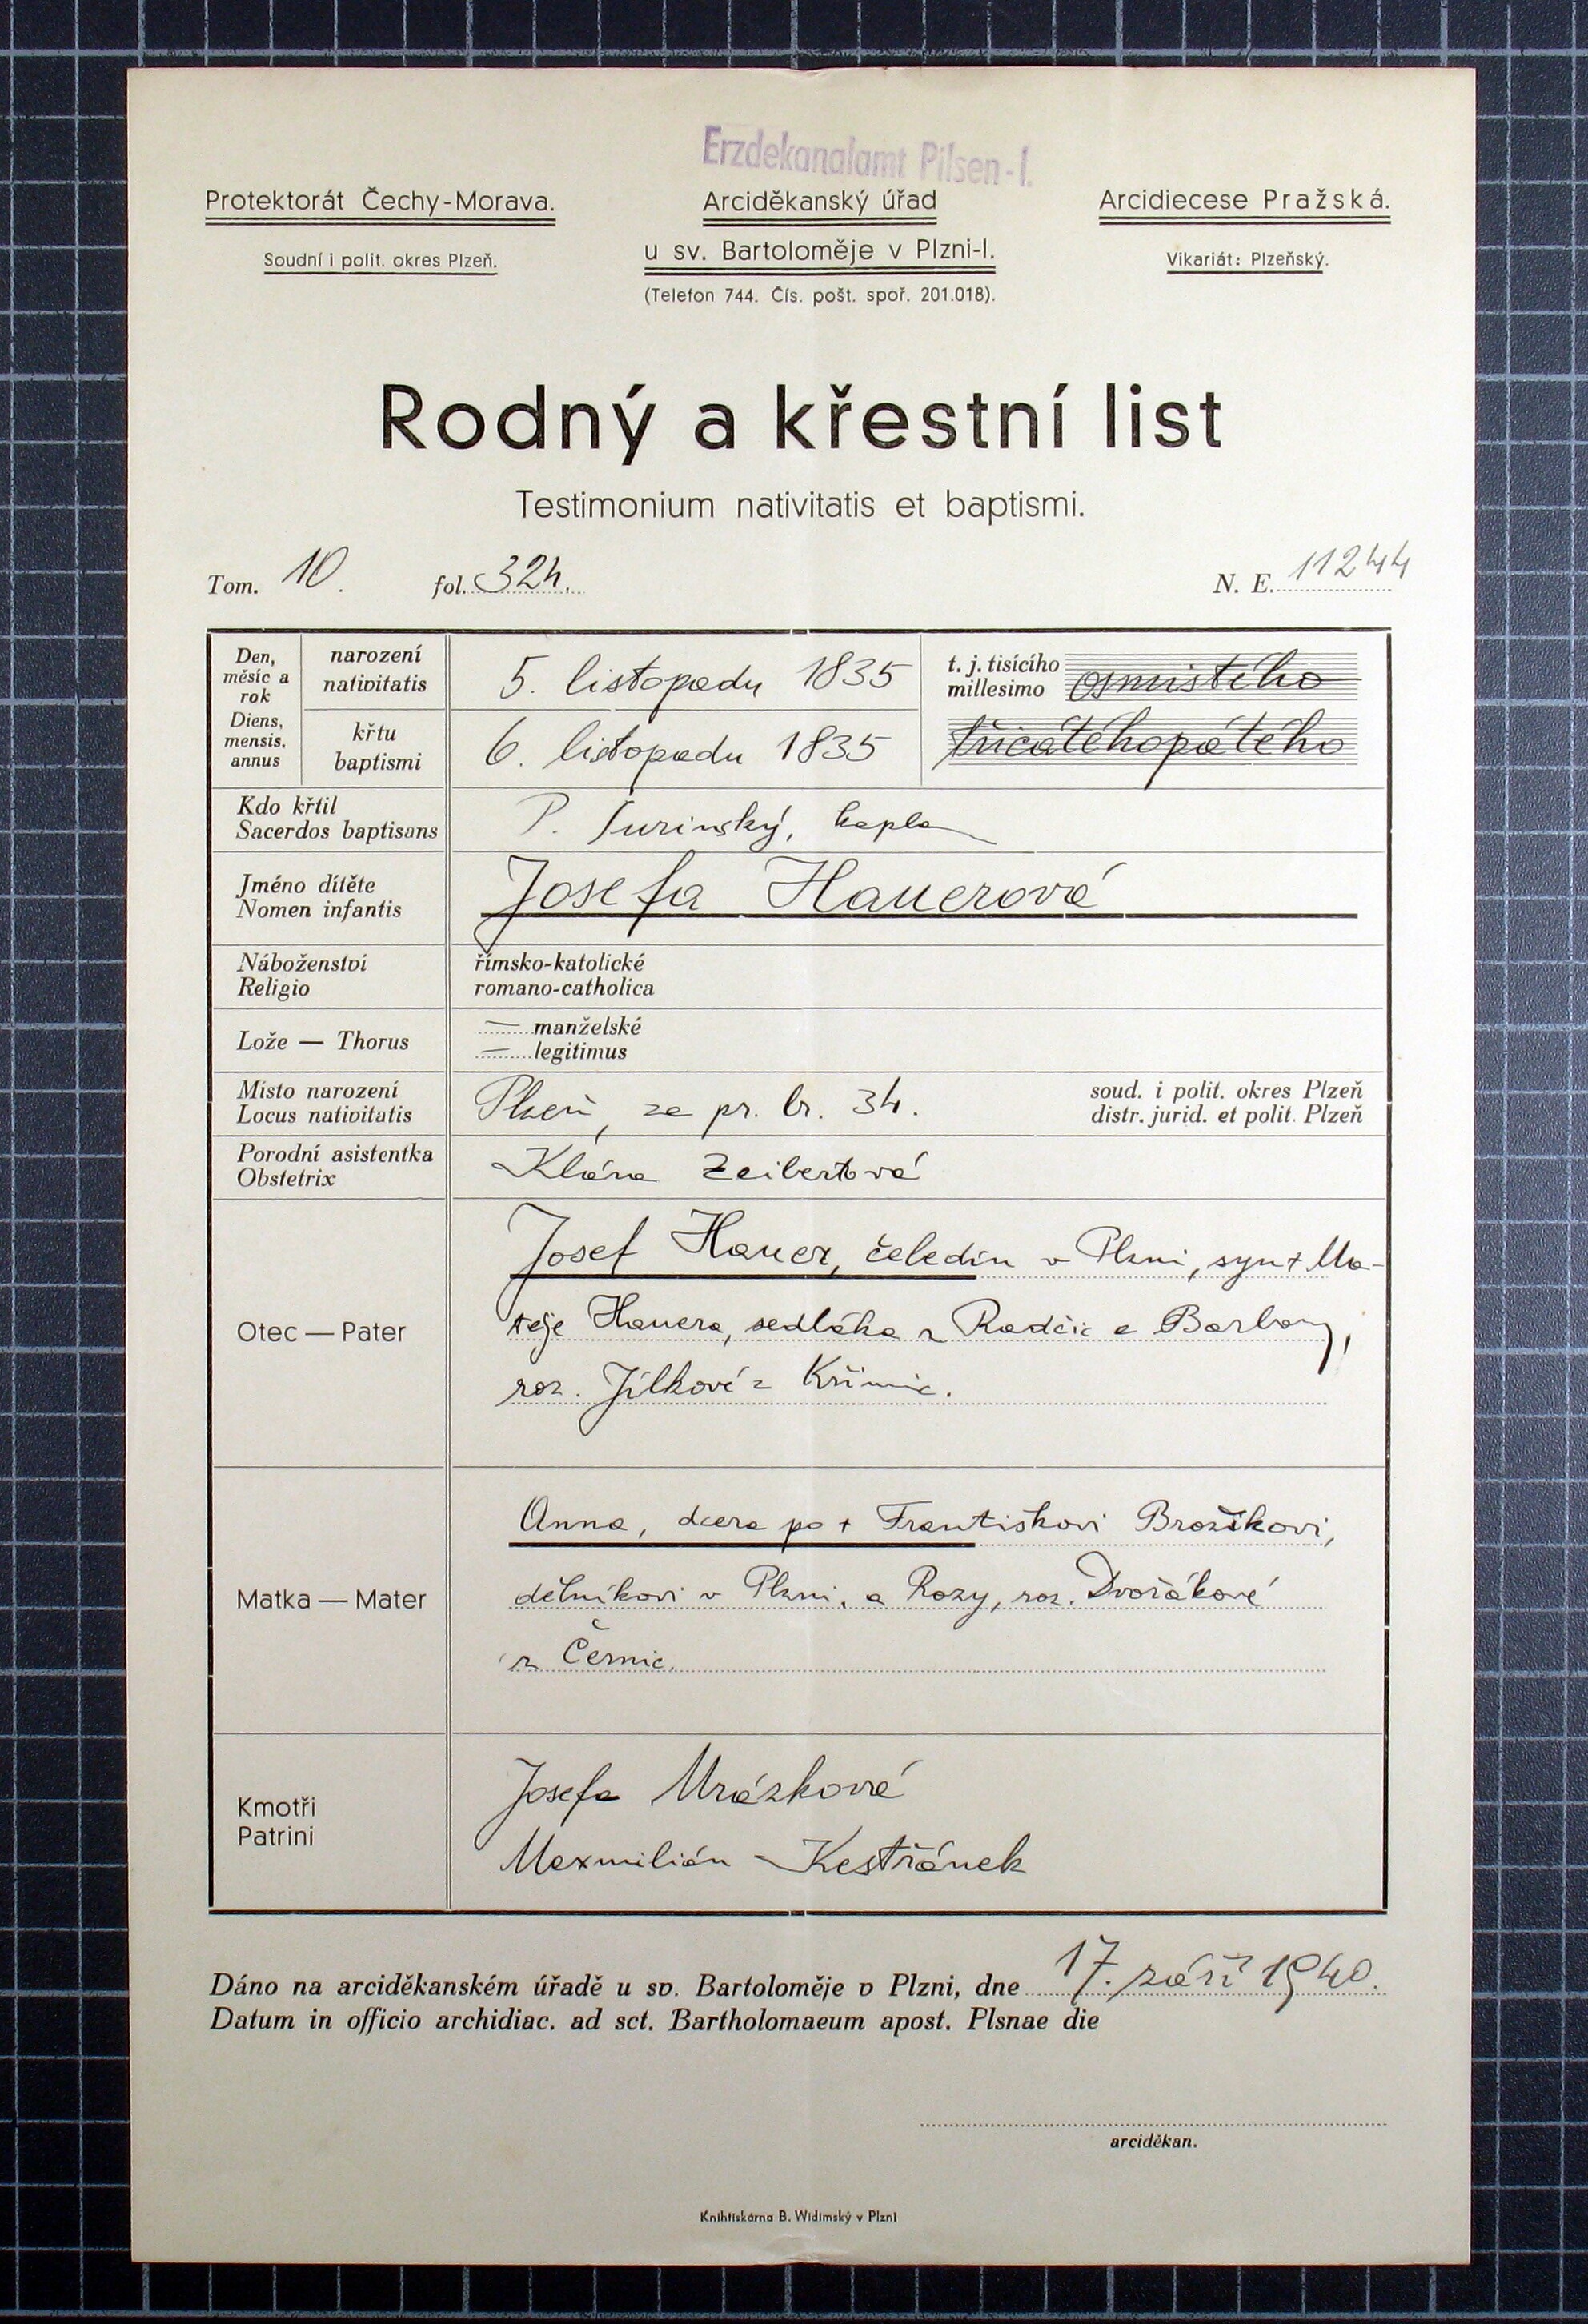 Erzdekanalamt Pilsen-I.
Protektorát Čechy-Morava.
Soudní i polit. okres Plzeň.
Arciděkanský úřad
u sv. Bartoloměje v Plzni-I.
(Telefon 744. Čís. pošt. spoř. 201.018).
Arcidiecese Pražská.
Vikariát: Plzeňský.
Rodný a křestní list
Testimonium nativitatis et baptismi.
Tom. 10. fol. 324. N. E. 11244
Den, měsíc a rok
Diens, mensis, annus
narození
nativitatis
5. listopadu 1835
t. j. tisícího
millesimo
osmistého
křtu
baptismi
6. listopadu 1835
třicátéhopátého
Kdo křtil
Sacerdos baptisans
P. Turinský, kaplan
Jméno dítěte
Nomen infantis
Josefa Hauerová
Náboženství
Religio
římsko-katolické
romano-catholica
Lože — Thorus
— manželské
— legitimus
Místo narození
Locus nativitatis
Plzeň, za pr. br. 34.
soud. i polit. okres Plzeň
distr. jurid. et polit. Plzeň
Porodní asistentka
Obstetrix
Klára Zeibertová
Otec — Pater
Josef Hauer, čeledín v Plzni, syn + Ma-
těje Hauera, sedláka z Radčic a Barbory,
roz. Jílkové z Křimic.
Matka — Mater
Anna, dcera po + Františkovi Brožíkovi,
dělníkovi v Plzni, a Rozy, roz. Dvořákové
z Černic.
Kmotři
Patrini
Josefa Mrázková
Maxmilián Kestřánek
Dáno na arciděkanském úřadě u sv. Bartoloměje v Plzni, dne 17. září 1940.
Datum in officio archidiac. ad sct. Bartholomaeum apost. Plsnae die
arciděkan.
Knihtiskárna B. Widimský v Plzni